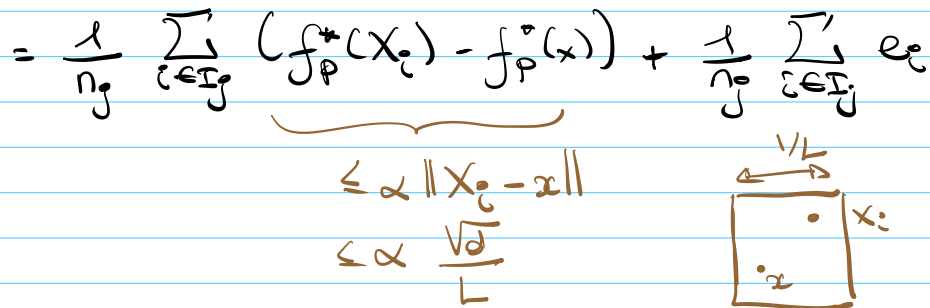 = 1/n_j ∑_{i∈I_j} (f_p^*(X_i) - f_p^*(x)) + 1/n_j ∑_{i∈I_j} e_i
≤ α ‖X_i - x‖
≤ α √d/L
1/L
X_i
x